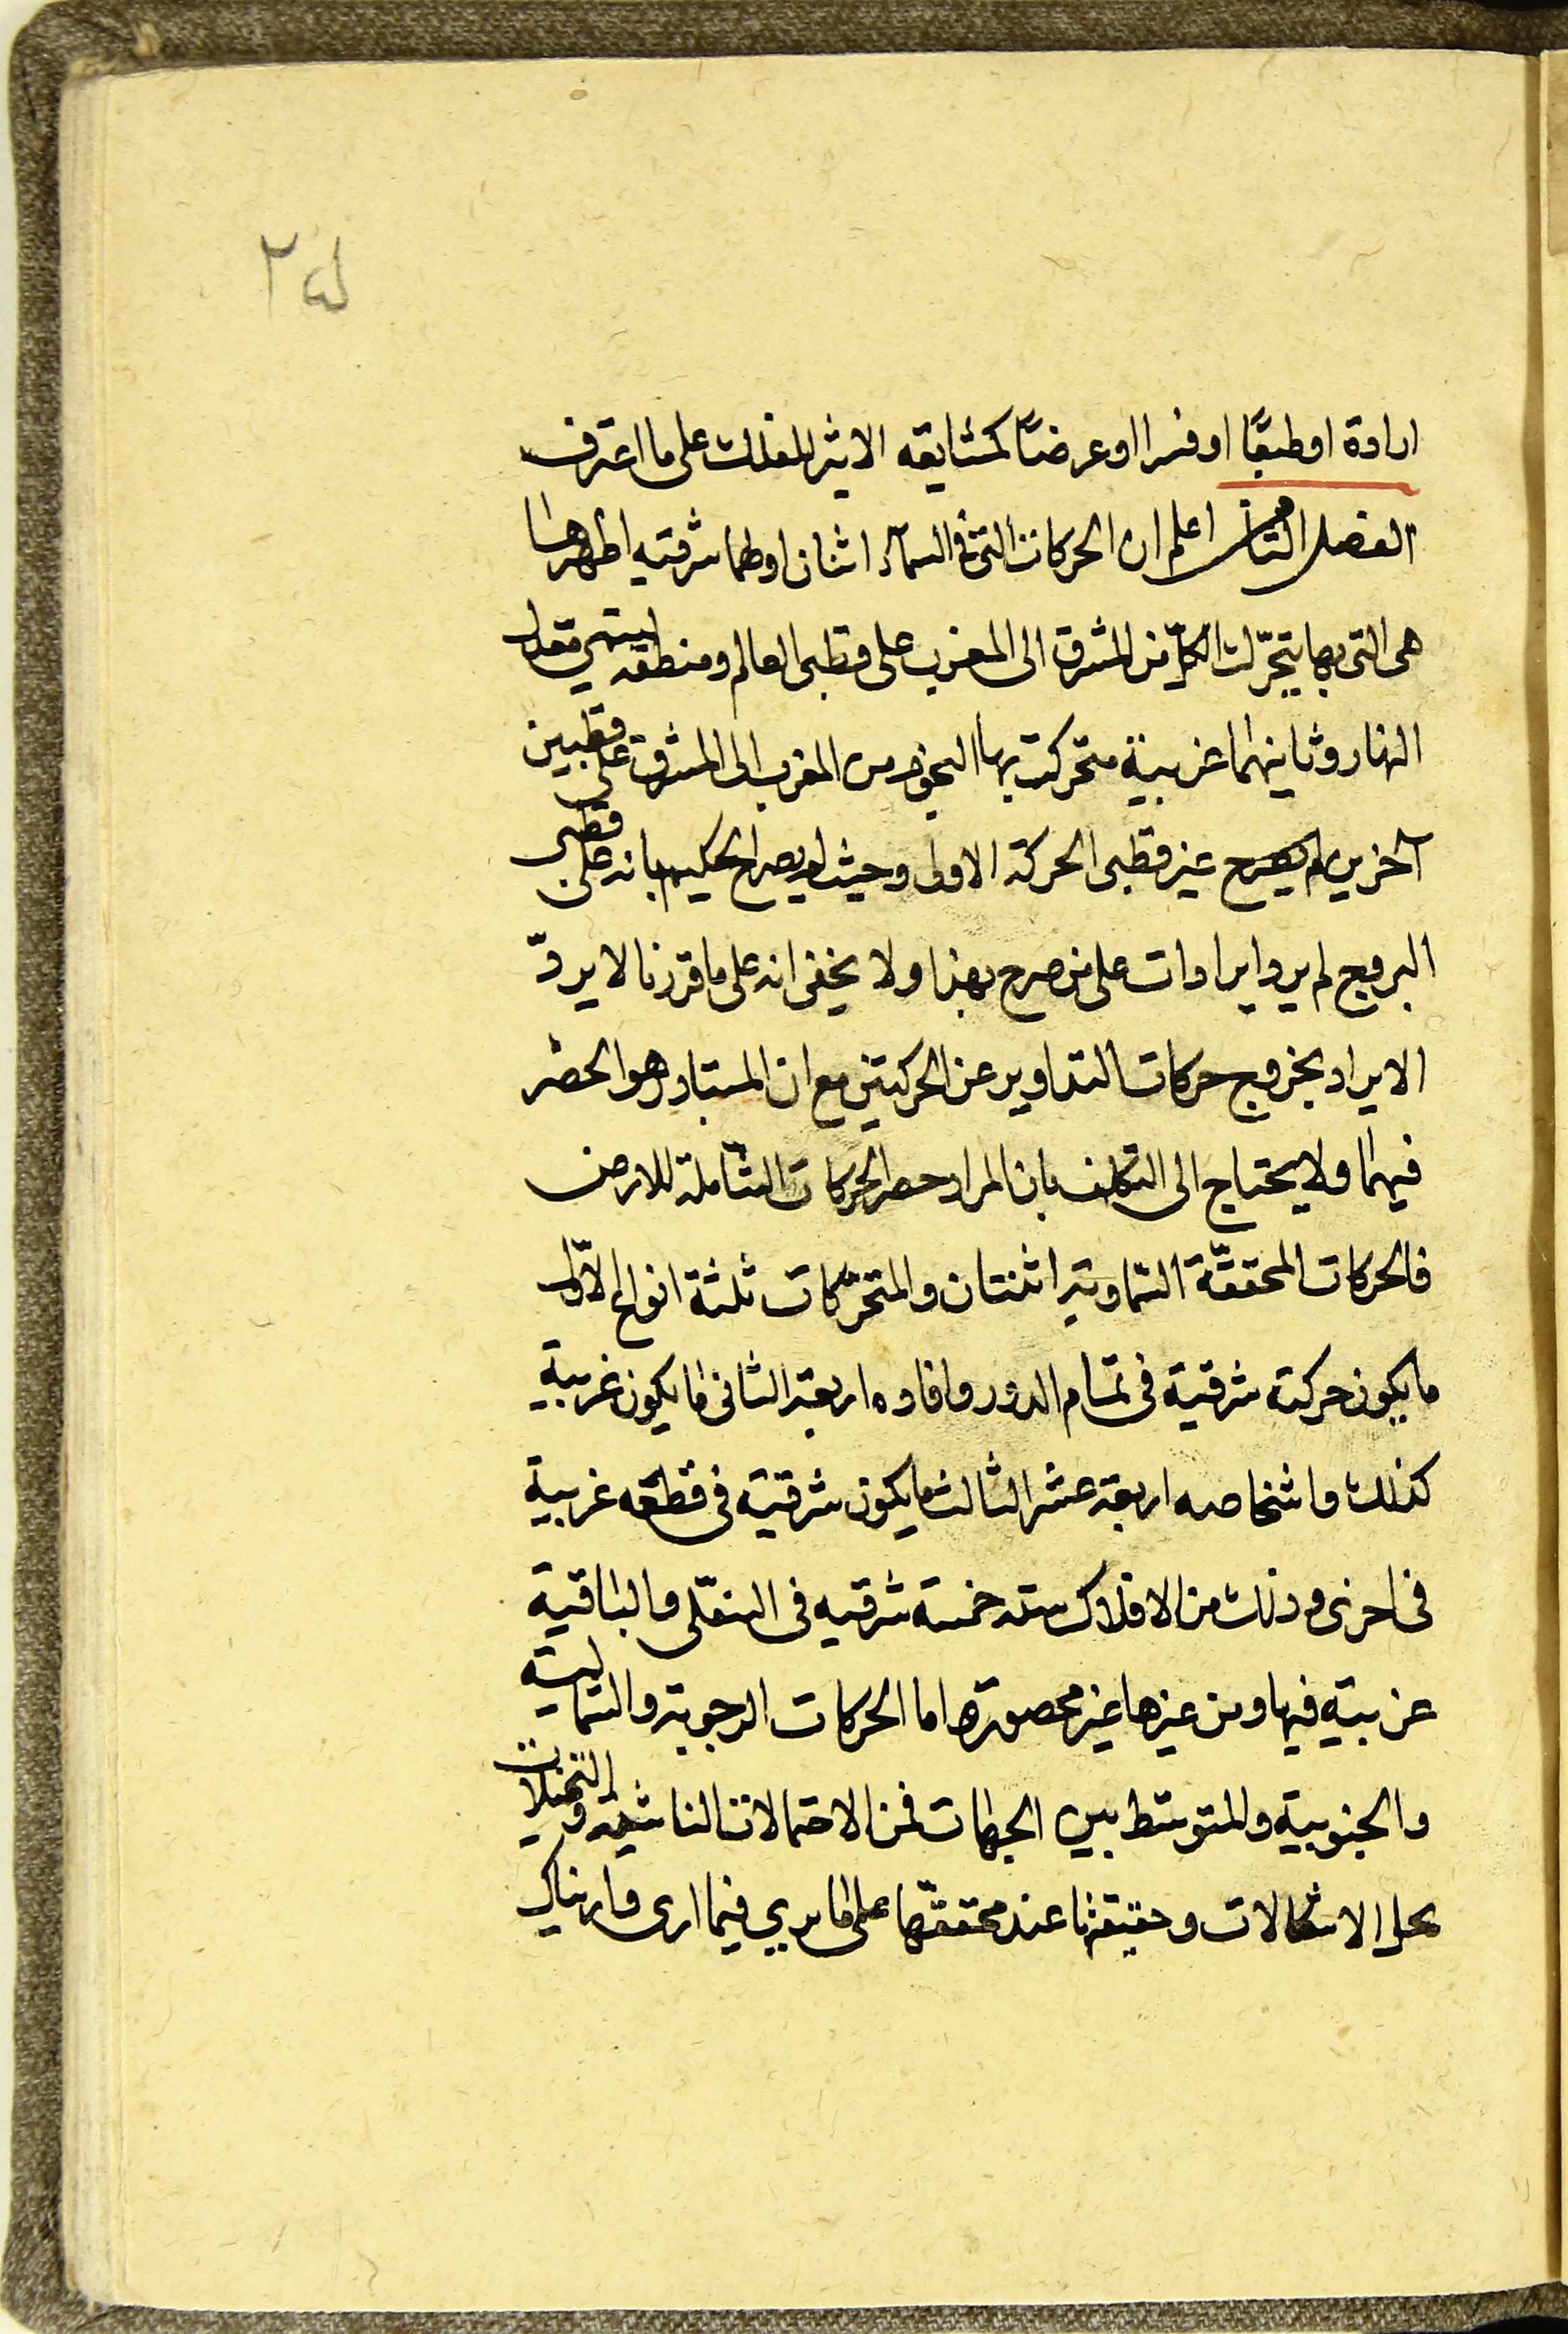 ارادة او طبعًا او قسرا او عرضًا كمشايعه الاثير للفلك على ما اعترف
الفصل الثامن اعلم ان الحركات التى فى السمآء اثنان اولهما شرقيه اظهرها
هى التى بها يتحرّك الكلّ من المشرق الى المغرب على قطبى العالم ومنطقته يسمى معدل
النهار وثانيهما غربية متحركت بها النجوم من المغرب الى المشرق على قطبين
آخرين غير قطبى الحركة الاولى وحيث لم يصرح الحكيم بانه على قطبى
البروج لم يرد ايرادات على من صرح بهذا ولا يخفى انه على ما قررنا لا يردّ
الايراد بخروج حركات التداوير عن الحركتين مع ان المتبادر هو الحصر
فيهما ولا يحتاج الى التكلف بان المراد حصر الحركات الشاملة للارض
فالحركات المحققّة السّماويّة اثنتان والمتحرّكات ثلثة انواع الاوّل
ما يكون حركته شرقية فى تمام الدور وافاده اربعة الثانى ما يكون غربية
كذلك واشخاصه اربعة عشر الثالث ما يكون شرقية فى قطعه غربية
فى اخرى وذلك من الافلاك ستة خمسة شرقيه فى السفلى والباقية
غربية فيها ومن غيرها غير محصورة اما الحركات الرجوية والشمالية
والجنوبية والمتوسّط بين الجهات فمن الاحتمالات الناشية والتخيلات
بحل الاشكالات وحقيقتها عند محققّها على ما يرى فيما ارى واريناك